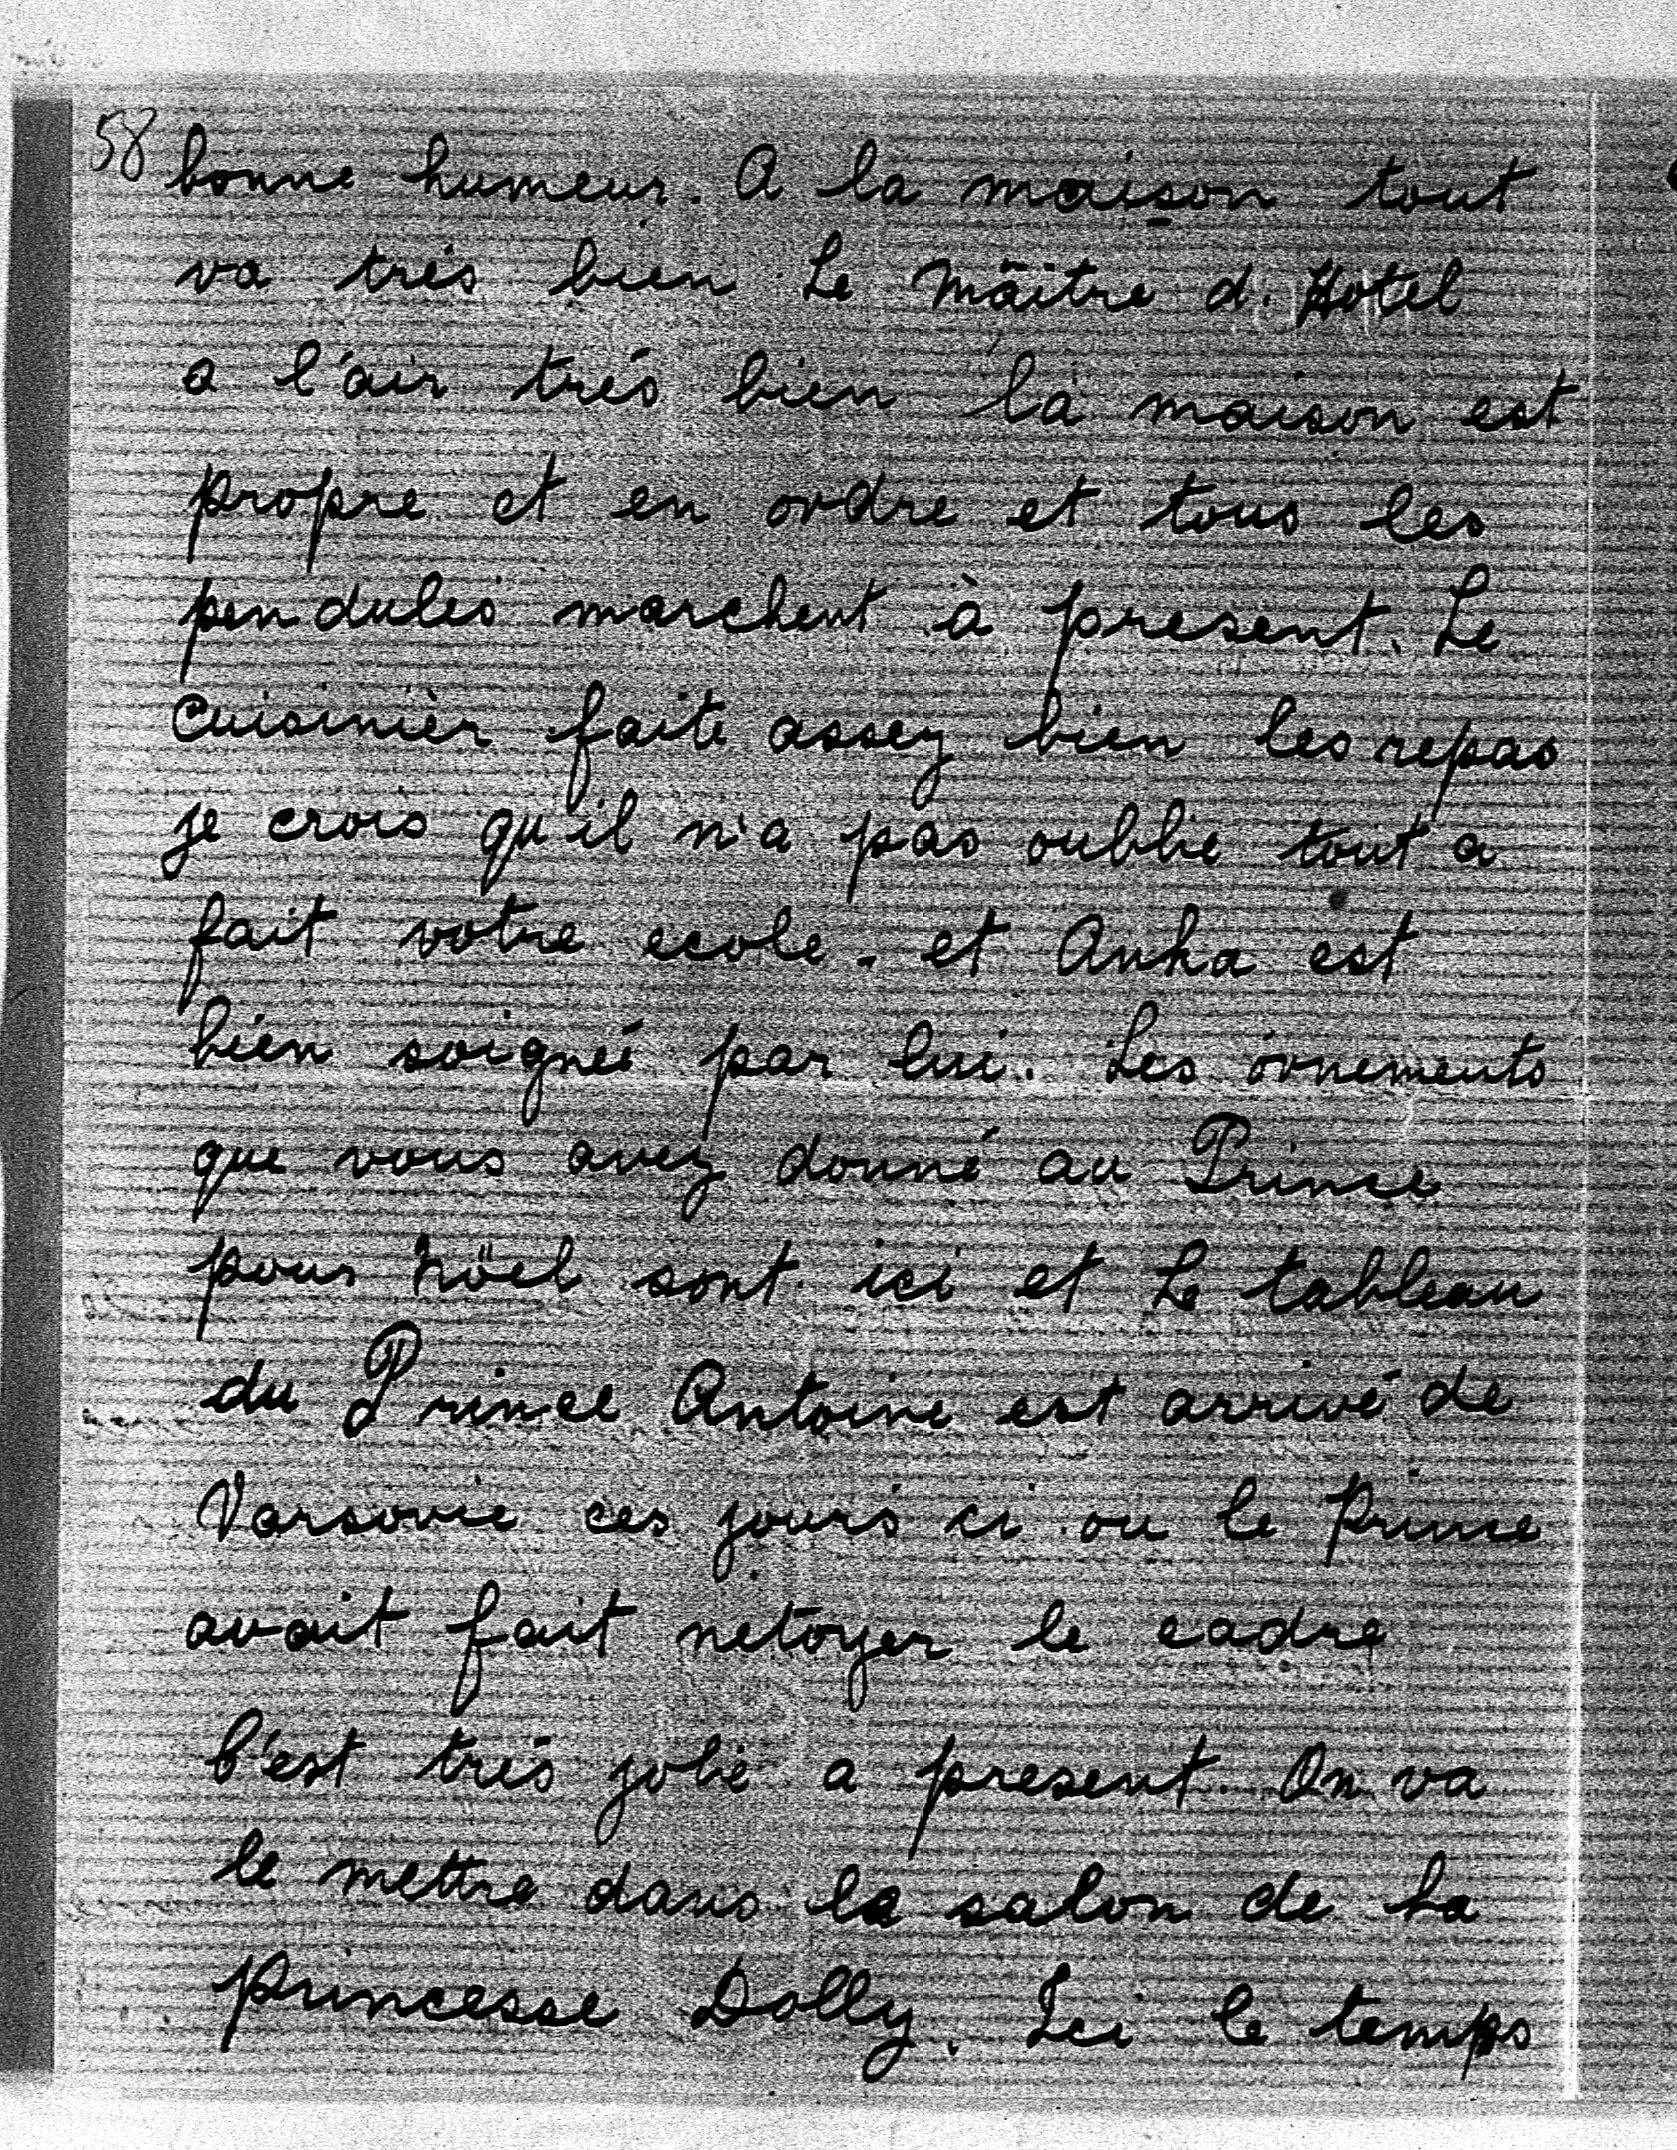 58
bonne humeur. A la maison tout
va trés bien Le Mâitre d. Hotel
a l'air trés bien la maison est
propre et en ordre et tous les
pendules marchent à present. Le
cuisinièr faite assez bien les repas
je crois qu'il n'a pas oublie tout a
fait votre ecole. et Anka est
bien soigneé par lui. Les ornements
que vous avez donné au Prince
pour Nöel sont ici et Le tableau
du Prince Antoine est arrivé de
Varsovie ces jours ci ou le Prince
avait fait netoyer le cadre
C'est trés jolie a present. On va
le mettre dans la salon de La
princesse Dolly. Ici le temps